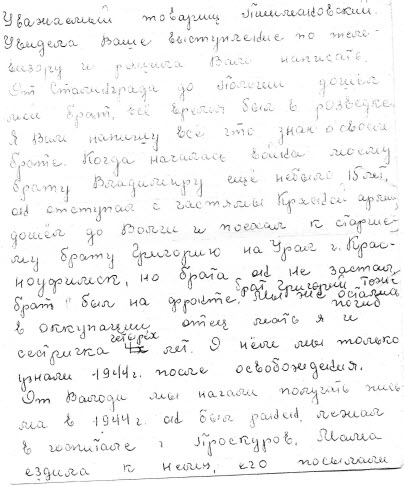 Уважаемый товарищ
Увидела Ваше выступление по теле-
визору и решила Вам написать.
От Сталинграда до Польши дошёл
мой брат, всё время был в разведке
Я Вам напишу всё что знаю о своём
брате. Когда началась война моему
брату Владимиру ещё небыло 15 лет,
он отступал с частями Красной арми
дошёл до Волги и поехал к старше-
му брату Григорию на Урал г. Крас-
ноуфимск, но брата он не застал,
брат был на фронте. брат Григорий тоже погиб
Мы же остались
в оккупации отец мать я и
сестричка четырёх лет. О нём мы только
узнали 1944 г. после освобождения.
От Володи мы начали получать пись-
ма в 1944 г. он был ранен, лежал
в госпитале г Проскуров. Мама
ездила к нему, его посылали